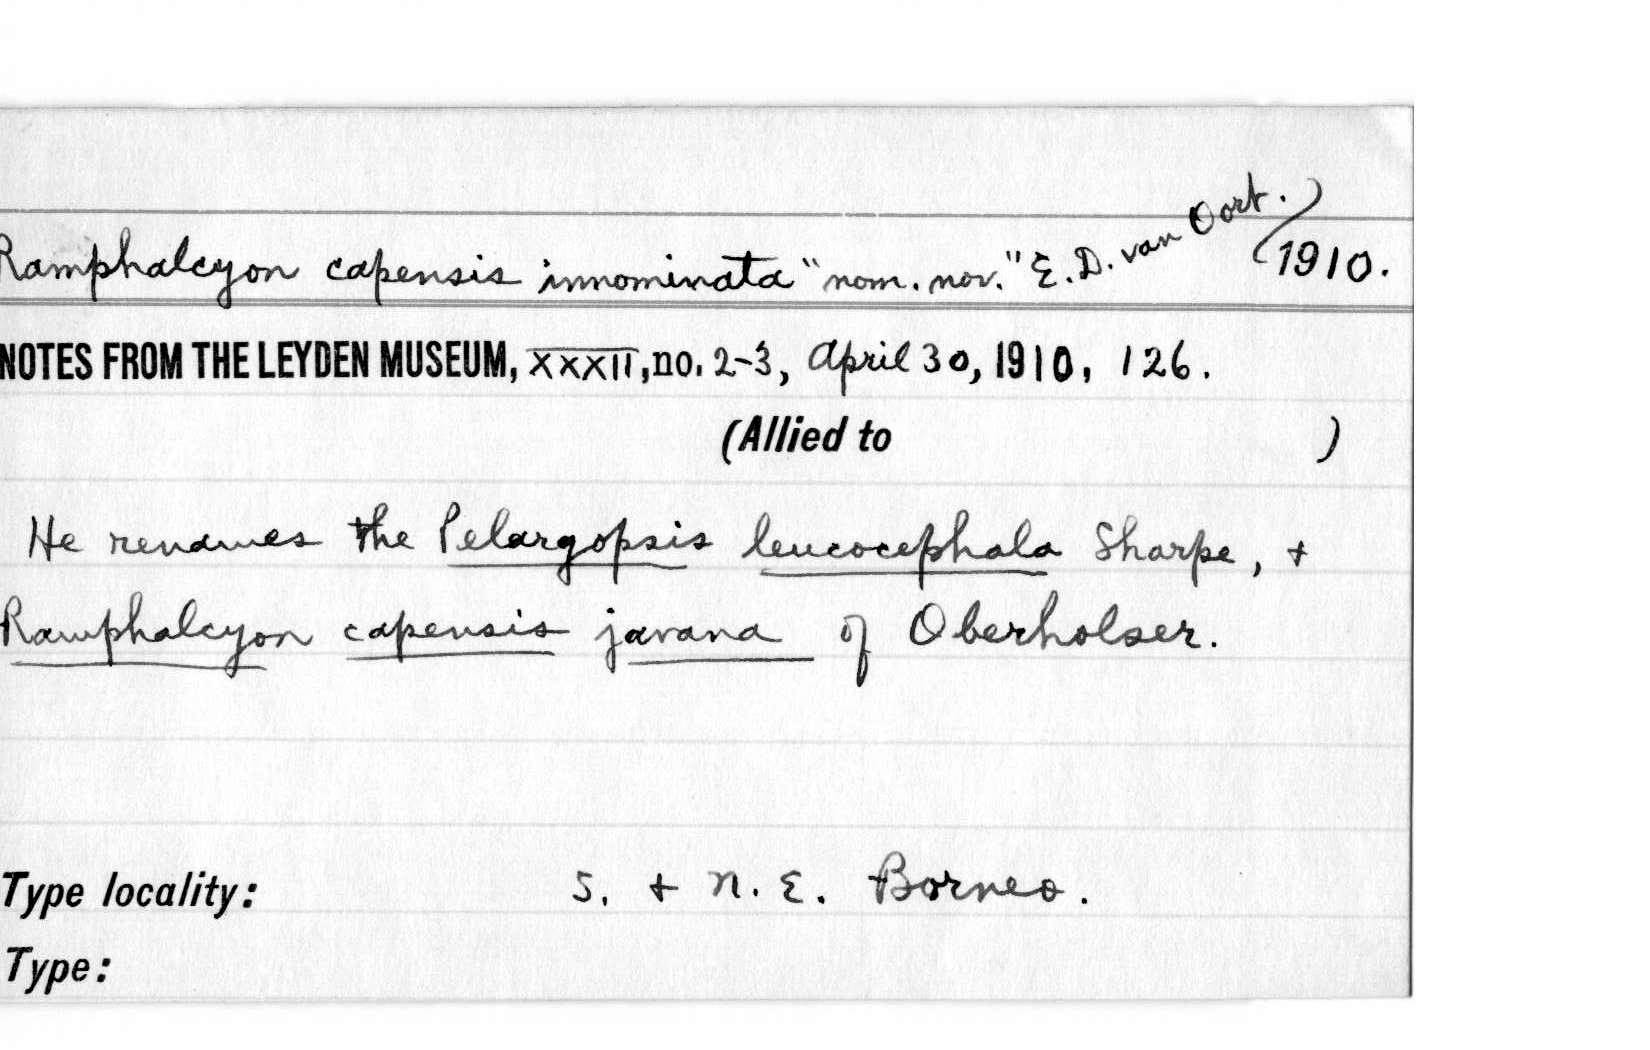 Ramphalcyon capensis innominata "nom. nov." E. D. van Oort. 1910.
NOTES FROM THE LEYDEN MUSEUM, XXXII, no. 2-3, April 30, 1910, 126.
(Allied to )
He renames the Pelargopsis leucocephala Sharpe, +
Ramphalcyon capensis javana of Oberholser.
Type locality: S. + N. E. Borneo.
Type: